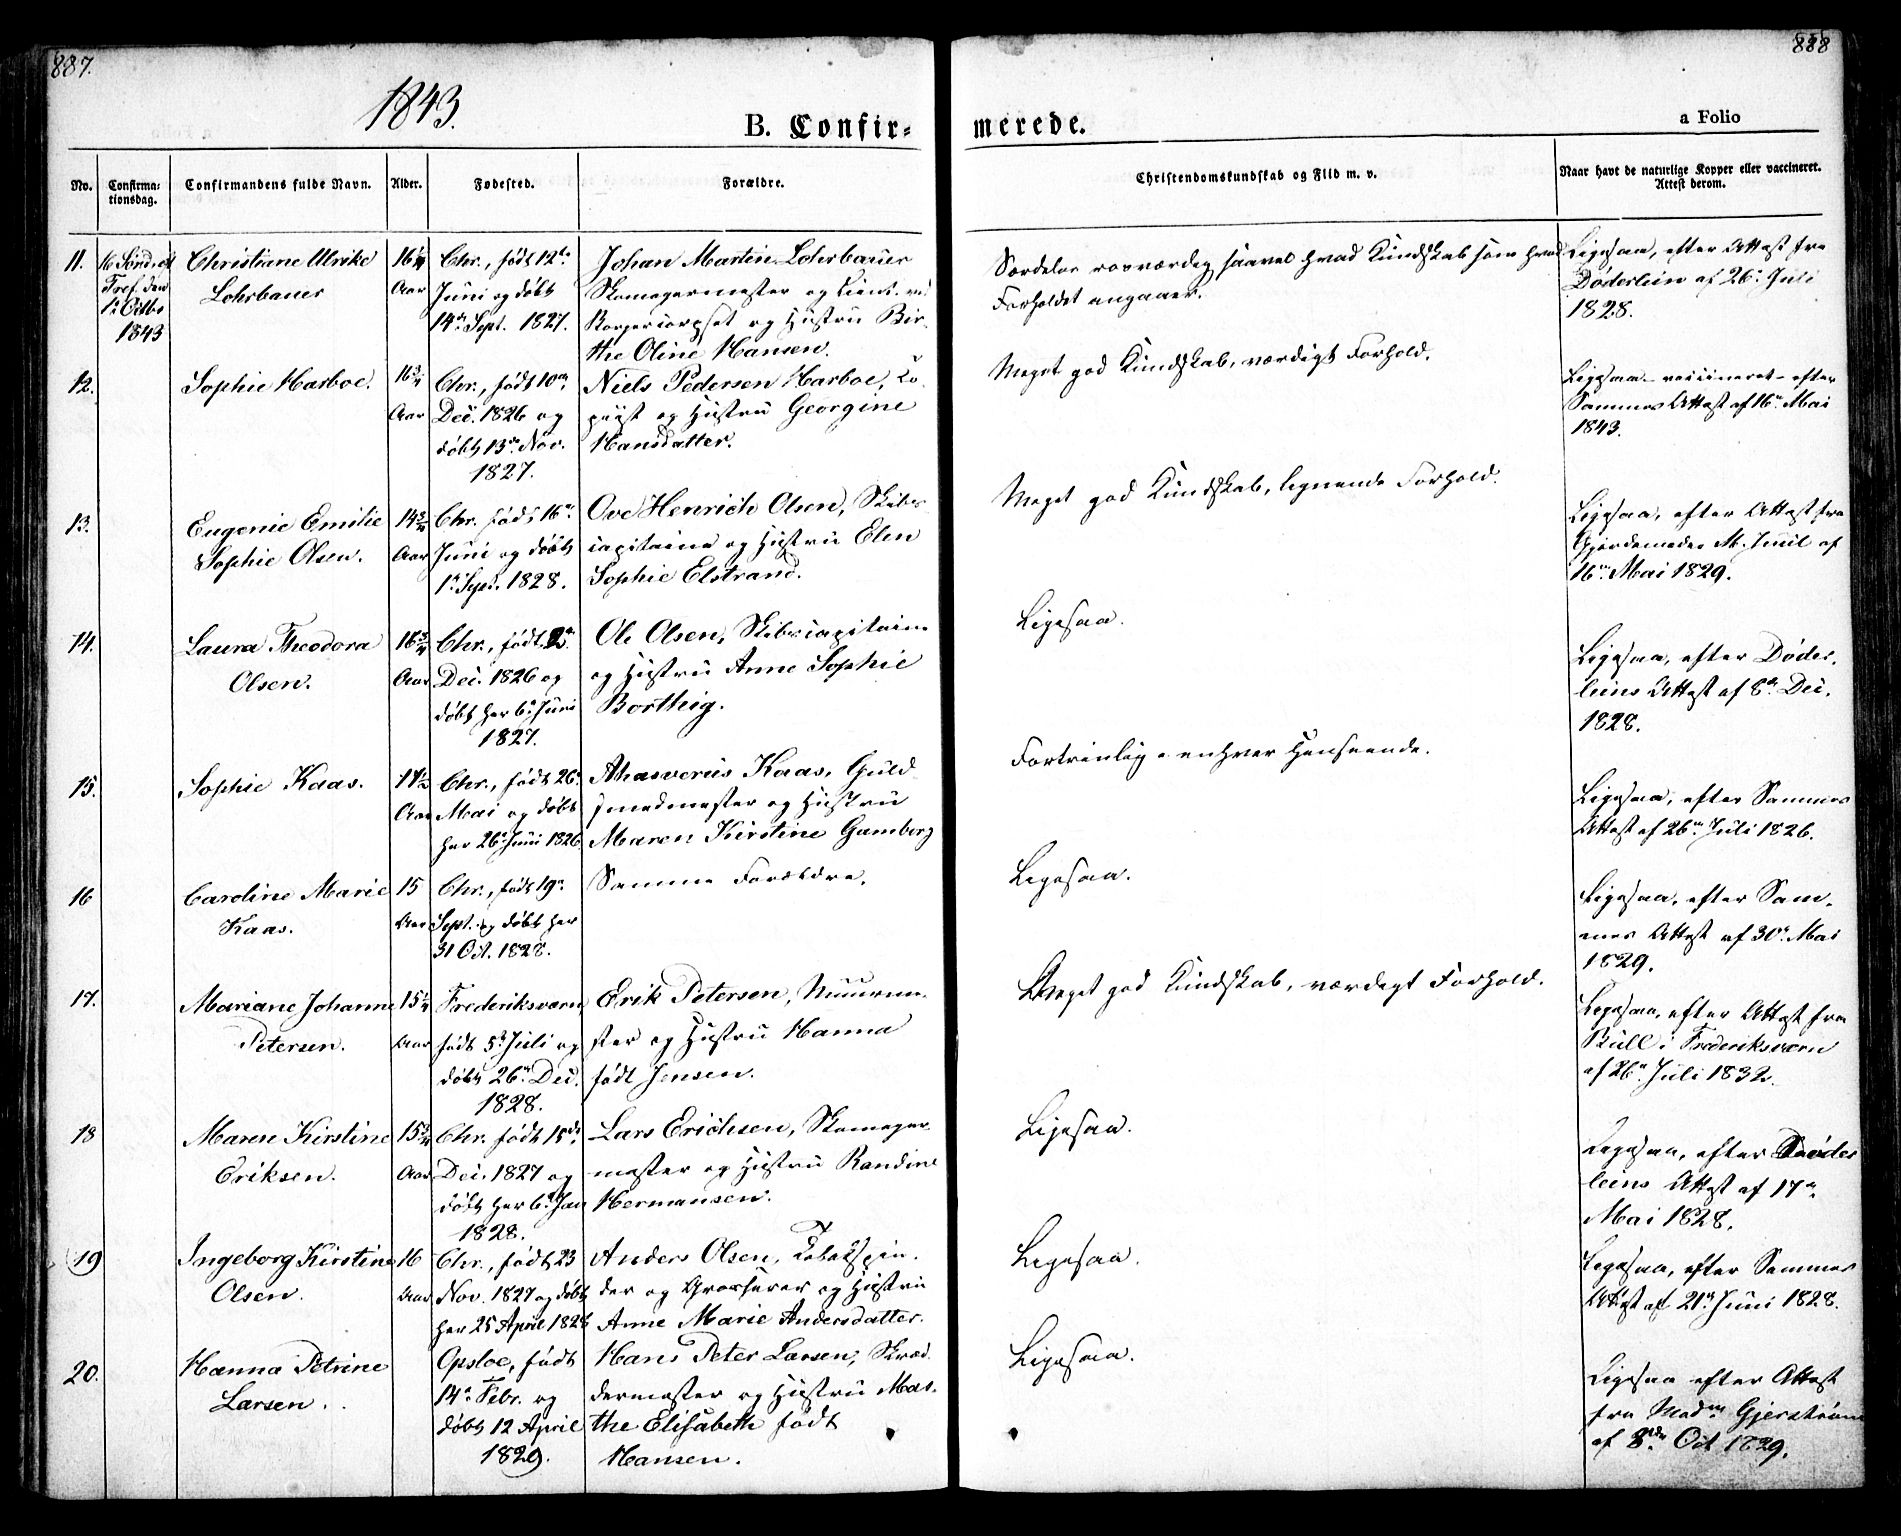 887.
888
1843.
B. Confir-
merede.
a Folio
No.
Confirma-
tionsdag.
Confirmandens fulde Navn.
Alder.
Fødested.
Forældre.
Christendomskundskab og Flid m. v.
Naar havt de naturlige Kopper eller vaccineret.
Attest derom.
11.
16 Sønd. ef
Tref. den
1ste Octbr
1843
Christiane Ulrike
Lohrbauer
16¼
Aar
Chr., født 12te
Juni og døbt
14de Sept. 1827.
Johan Martin Lohrbauer
Skomagermester og Lieut. ved
Borgercorpset og Hustru Bir-
the Oline Hansen.
Særdeles rosværdig saavel hvad Kundskab som hvad
Forholdet angaaer.
Ligesaa, efter Attest fra
Døderlein af 26. Juli
1828.
12.
Sophie Harboe.
16¾
Aar
Chr., født 10de
Dec. 1826 og
døbt 13de Nov.
1827.
Niels Pedersen Harboe, Co-
piist og Hustru Georgine
Hansdatter.
Meget god Kundskab, værdigt Forhold.
Ligesaa - vaccineret - efter
Sammes Attest af 16de Mai
1843.
13.
Eugenie Emilie
Sophie Olsen.
14¾
Aar
Chr. født 16de
Juni og døbt
1ste Sept. 1828.
Ove Henrich Olsen, Skibs-
capitaine og Hustru Elen
Sophie Elstrand.
Meget god Kundskab, lignende Forhold.
Ligesaa, efter Attest fra
Gjordemoder M. Juul af
16de Mai 1829.
14.
Laura Theodora
Olsen.
16¾
Aar
Chr., født 2den
Dec. 1826 og
døbt her 6te Juni
1827.
Ole Olsen, Skibscapitain
og Hustru Anne Sophie
Borthig.
Ligesaa.
Ligesaa, efter Døder-
leins Attest af 8de Dec.
1828.
15.
Sophie Kaas.
17½
Aar
Chr., født 26.
Mai og døbt
her 26. Juni 1826
Ahasverus Kaas, Guld-
smedmester og Hustru
Maren Kirstine Gamborg
Fortrinlig i enhver Henseende.
Ligesaa, efter Sammes
Attest af 26de Juli 1826.
16
Caroline Marie
Kaas.
15
Aar
Chr., født 19de
Sept. og døbt her
31 Oct. 1828.
Samme Forældre.
Ligesaa.
Ligesaa, efter Sam-
mes Attest af 30te Mai
1829.
17.
Mariane Johanne
Petersen.
15¼
Aar
Frederiksværn,
født 5te Juli og
døbt 26de Dec.
1828.
Erik Petersen, Muurme-
ster og Hustru Hanna
født Jensen.
Meget god Kundskab, værdigt Forhold.
Ligesaa, efter Attest fra
Bull i Frederiksværn
af 26de Juli 1832.
18
Maren Kirstine
Eriksen.
15¾
Aar
Chr. født 15de
Dec. 1827 og
døbt her 6te Jan
1828.
Lars Erichsen, Skomager-
mester og Hustru Randine
Hermansen.
Ligesaa.
Ligesaa, efter Døder
leins Attest af 17de
Mai 1828.
19
Ingeborg Kirstine
Olsen.
16
Aar
Chr., født 23
Nov. 1827 og døbt
her 25 April 1828
Anders Olsen, Tobakspin-
der og Grosserer og Hustru
Anne Marie Andersdatter.
Ligesaa.
Ligesaa, efter Sammes
Attest af 21de Juni 1828.
20.
Hanna Petrine
Larsen.
Opsloe, født
14de Febr. og
døbt 12 April
1829.
Hans Peter Larsen, Skræd-
dermester og Hustru Mar-
the Elisabeth født
Hansen.
Ligesaa.
Ligesaa efter Attest
fra Madm Gjerstrøm
af 8de Oct 1829.